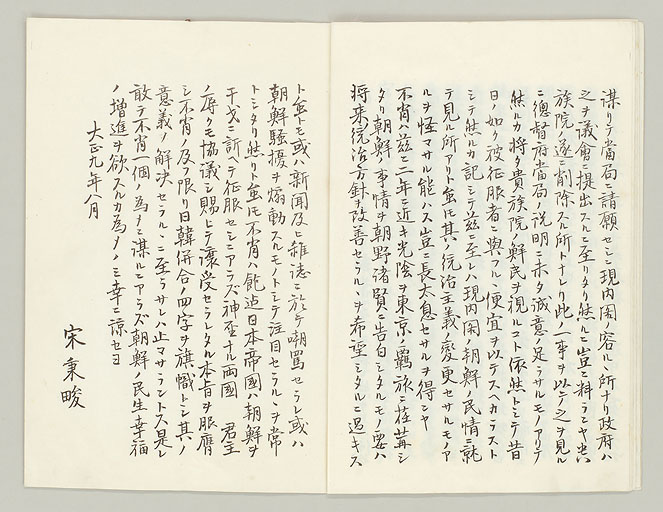 謀リテ當局ニ請願セシニ現内閣ノ容ルヽ所ナリ政府ハ
之ヲ議會ニ提出スルニ至リタリ然ルニ豈ニ料ランヤ
族院ハ遂ニ削除スル所トナレリ此ノ一事ヲ以テ之ヲ見ル
ニ總督府當局ノ説明ニ未タ誠意ノ足ラサルモノアリテ
然ルカ將タ貴族院ノ鮮民ヲ視ルコト依然トシテ昔
日ノ如ク被征服者ニ與フルノ便宜ヲ以テスヘカラスト
シテ然ルカ記シテ茲ニ至レハ現内閣ノ朝鮮ノ民情ニ就
テ見ル所アリト雖モ其ノ統治主義ノ變更セサルモノア
ルヲ怪マサル能ハス豈ニ長太息セサルヲ得ンヤ
不肖ハ茲ニ二年ニ近キ光陰ヲ東京ノ羈旅ニ荏苒シ
タリ朝鮮ノ事情ヲ朝野諸賢ニ告白シタルモノ要ハ
將来統治方針ヲ改善セラルヽヲ希望シタルニ過キス
ト雖トモ或ハ新聞及ヒ雜誌ニ於テ嘲罵セラレ或ハ
朝鮮騷擾ヲ煽動スルモノトシテ注目セラルヽヲ常
トシタリ然リト雖モ不肖ハ飽迄日本帝國ハ朝鮮ヲ
干戈ニ訴ヘテ征服セシニアラズ神聖ナル両國ノ君主
ノ辱クモ協議シ賜ヒテ讓受セラレタル本旨ヲ服膺
シ不肖ノ及フ限リ日韓併合ノ四字ヲ旗幟トシ其ノ
意義ノ解決セラルヽニ至ラサレハ止マサラントス是レ
敢テ不肖一個ノ為メニ謀ルニアラズ朝鮮ノ民生幸福
ノ増進ヲ欲スルカ為メノミ幸ニ諒セヨ
大正九年八月
宋秉畯